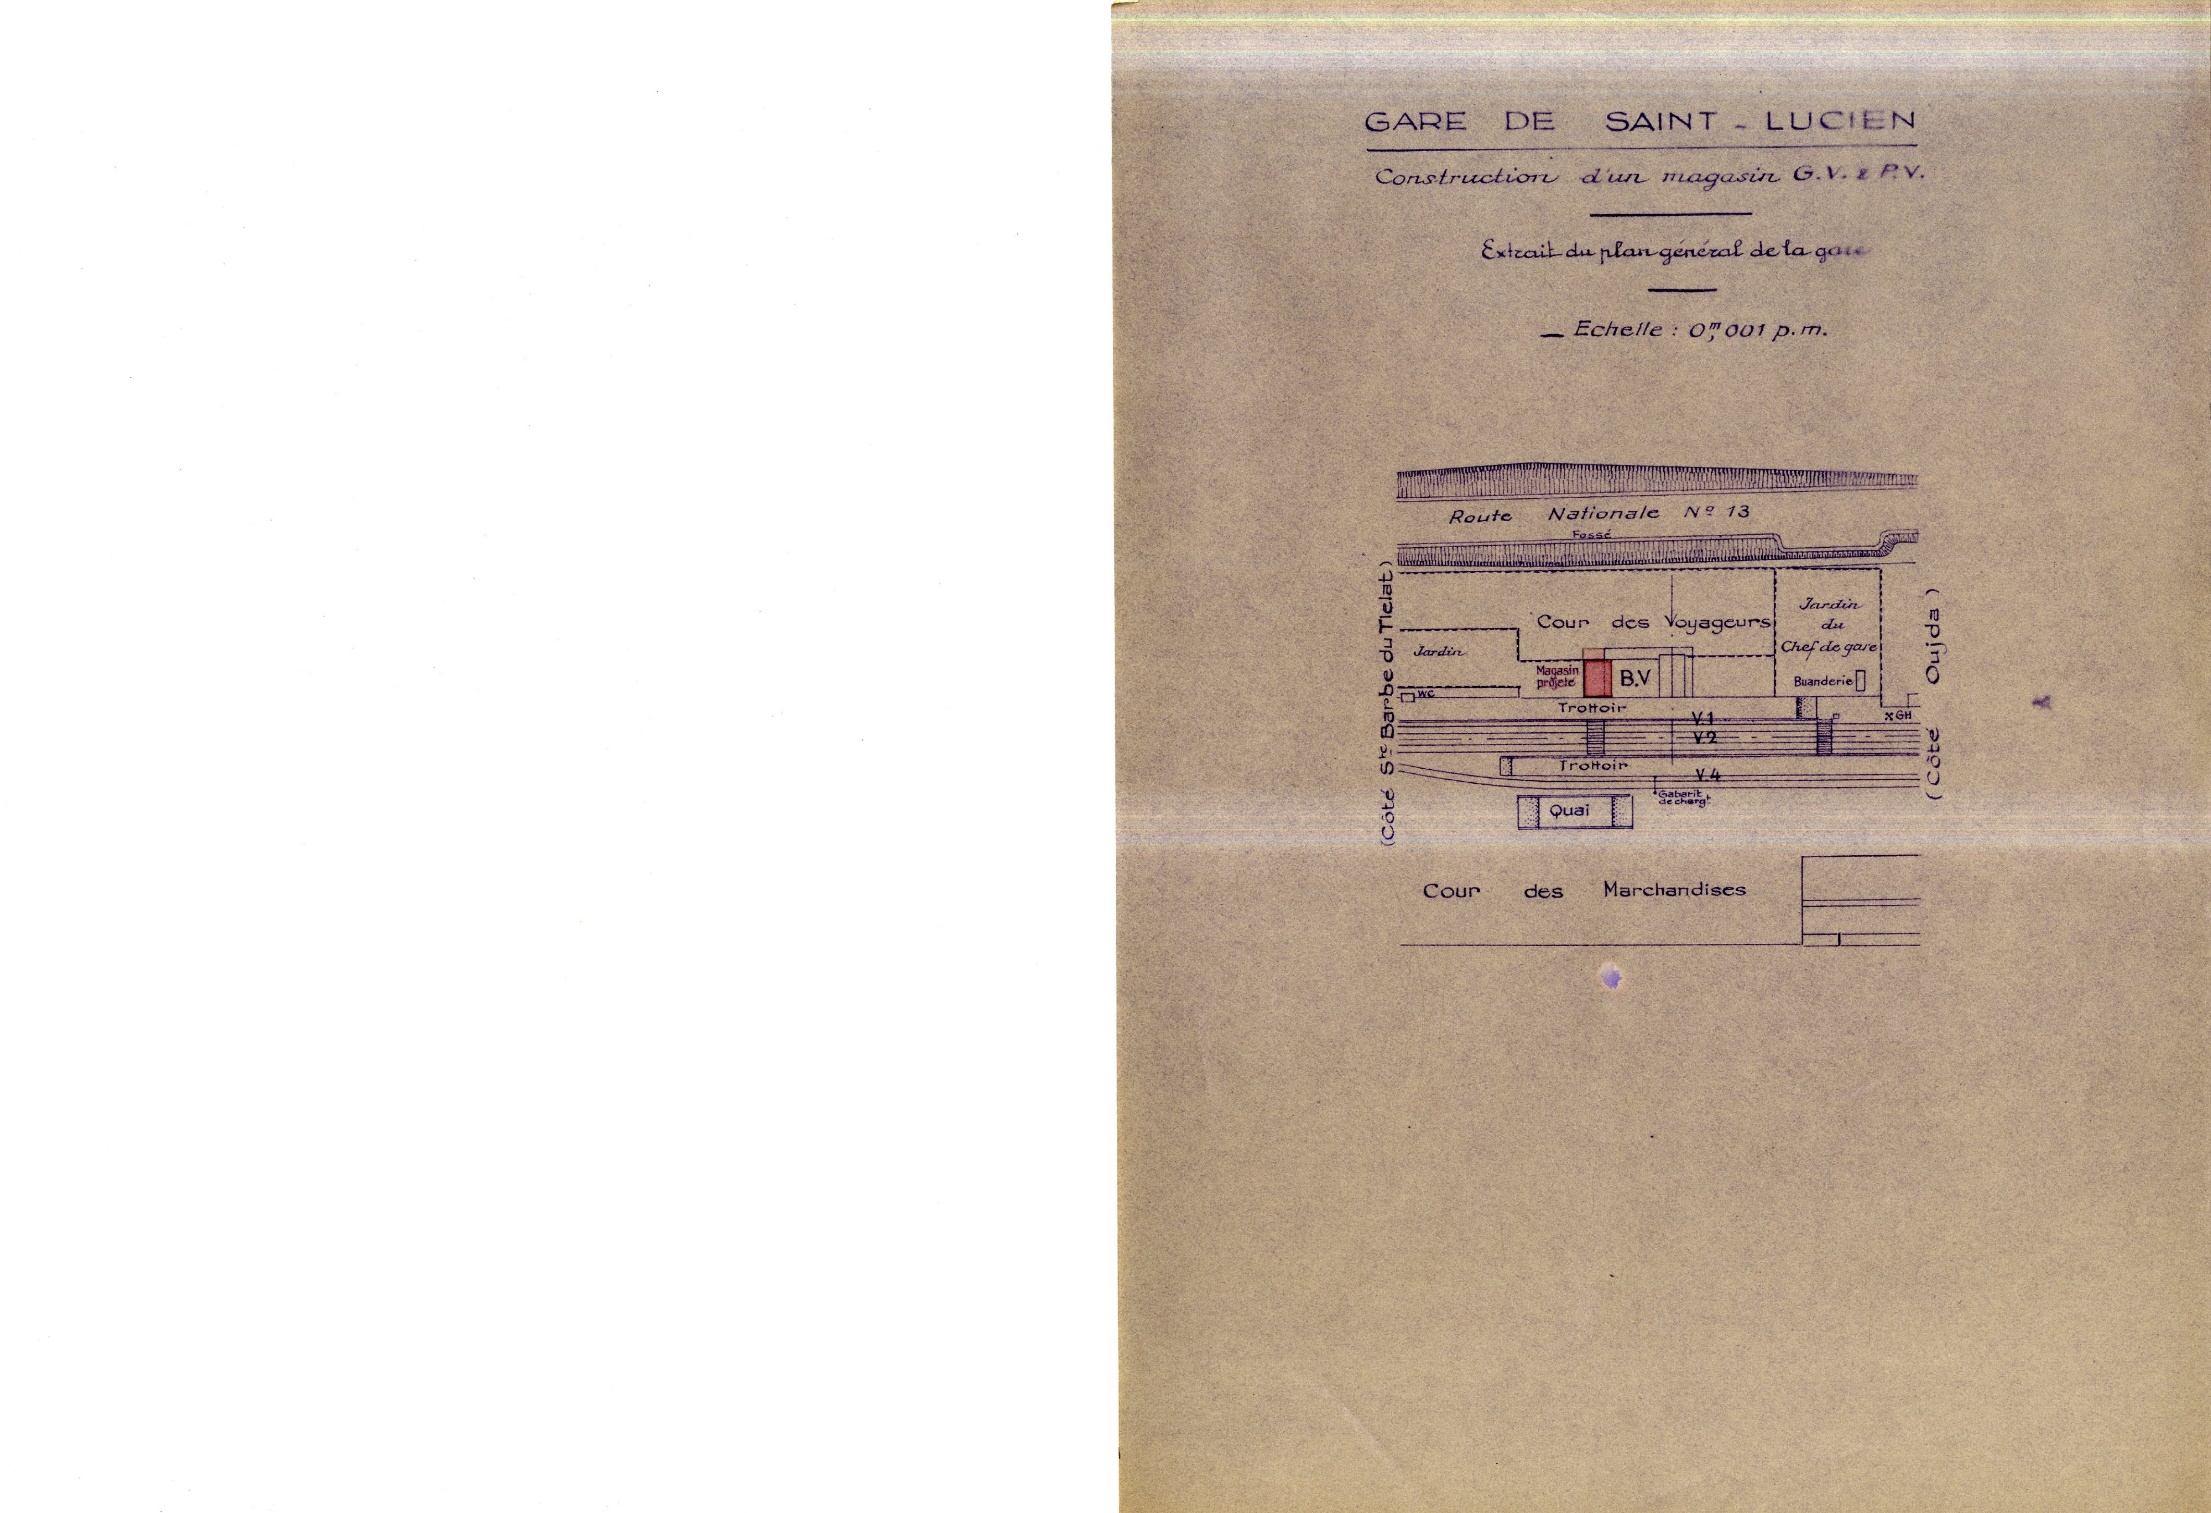 GARE DE SAINT - LUCIEN
Construction d'un magasin G.V. & P.V.
Extrait du plan général de la gare
Echelle : 0,m001 p.m.
Route Nationale Nº 13
Fossé
(Côté Ste Barbe du Tlélat)
(Côté Oujda)
Cour des Voyageurs
Jardin
du
Chef de gare
Jardin
Magasin
projeté
B.V
Buanderie
WC
Trottoir
V.1
GH
V.2
Trottoir
V.4
Gabarit
de chargt
Quai
Cour des Marchandises